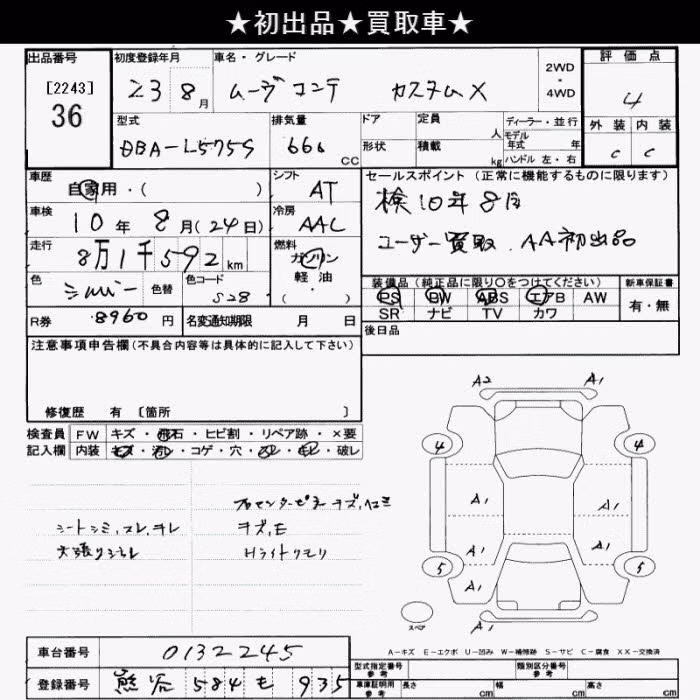 ★初出品★買取車★
出品番号 初度登録年月 車名・グレード 2WD・4WD 評価点
[2243] 36 23 8月 ムーヴコンテ カスタムX 4
型式 排気量 ドア 定員 人 ディーラー・並行 外装 内装
DBA-L575S 666 CC 形状 積載 kg モデル年式 年 ハンドル 左・右 C C
車歴 自家用・( ) シフト AT セールスポイント (正常に機能するものに限ります)
車検 10年8月(24日) 冷房 AAC 検10年8月
走行 8万1千592km 燃料 ガソリン 軽油・( ) ユーザー買取、AA初出品
色 シルバー 色替 色コード S28 装備品 (純正品に限り○をつけてください) 新車保証書
PS PW ABS エアB AW 有・無
SR ナビ TV カワ
R券 8960円 名変通知期限 月 日 後日品
注意事項申告欄(不具合内容等は具体的に記入して下さい)
修復歴 有 〔箇所 〕
検査員 FW キズ・飛石・ヒビ割・リペア跡・×要
記入欄 内装 キズ・汚レ・コゲ・穴・スレ・キレ・破レ
シートシミ,スレ,キレ
天張りシミ
キズ,E
Hライトクモリ
A2 A1
4 4
A1 A1
A1 A1
5 5
A1
A1
スペア
A-キズ E-エクボ U-凹み W-補修跡 S-サビ C-腐食 XX-交換済
車台番号 0132245
型式指定番号 参考 類別区分番号 参考
登録番号 熊谷 584 も 935
車庫証明用 参考 長さ cm 幅 cm 高さ cm